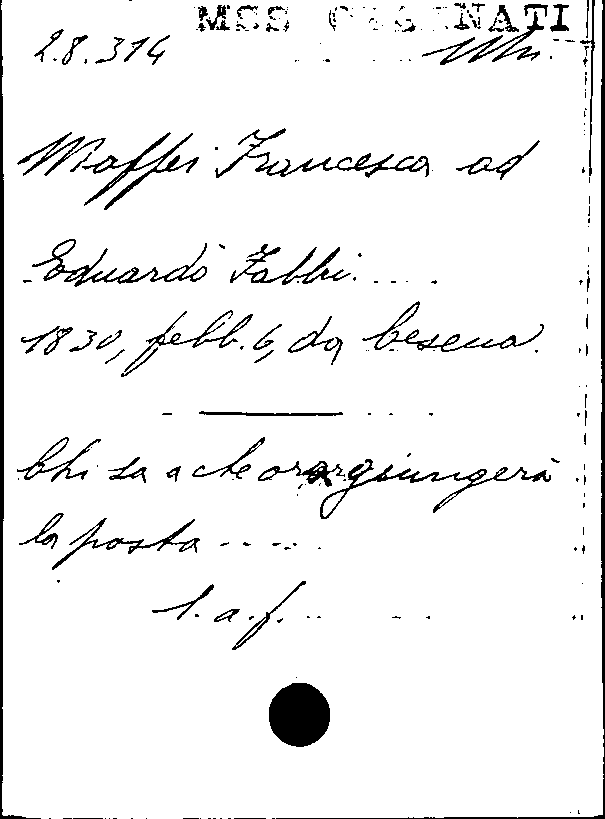 MSS
2.8.314
Maffei Francesca ad
Eduardo Fabbri.....
1830, febb. 6, da Cesena.
Chi sa a che ora giungerà
la posta .....
1. a. f.